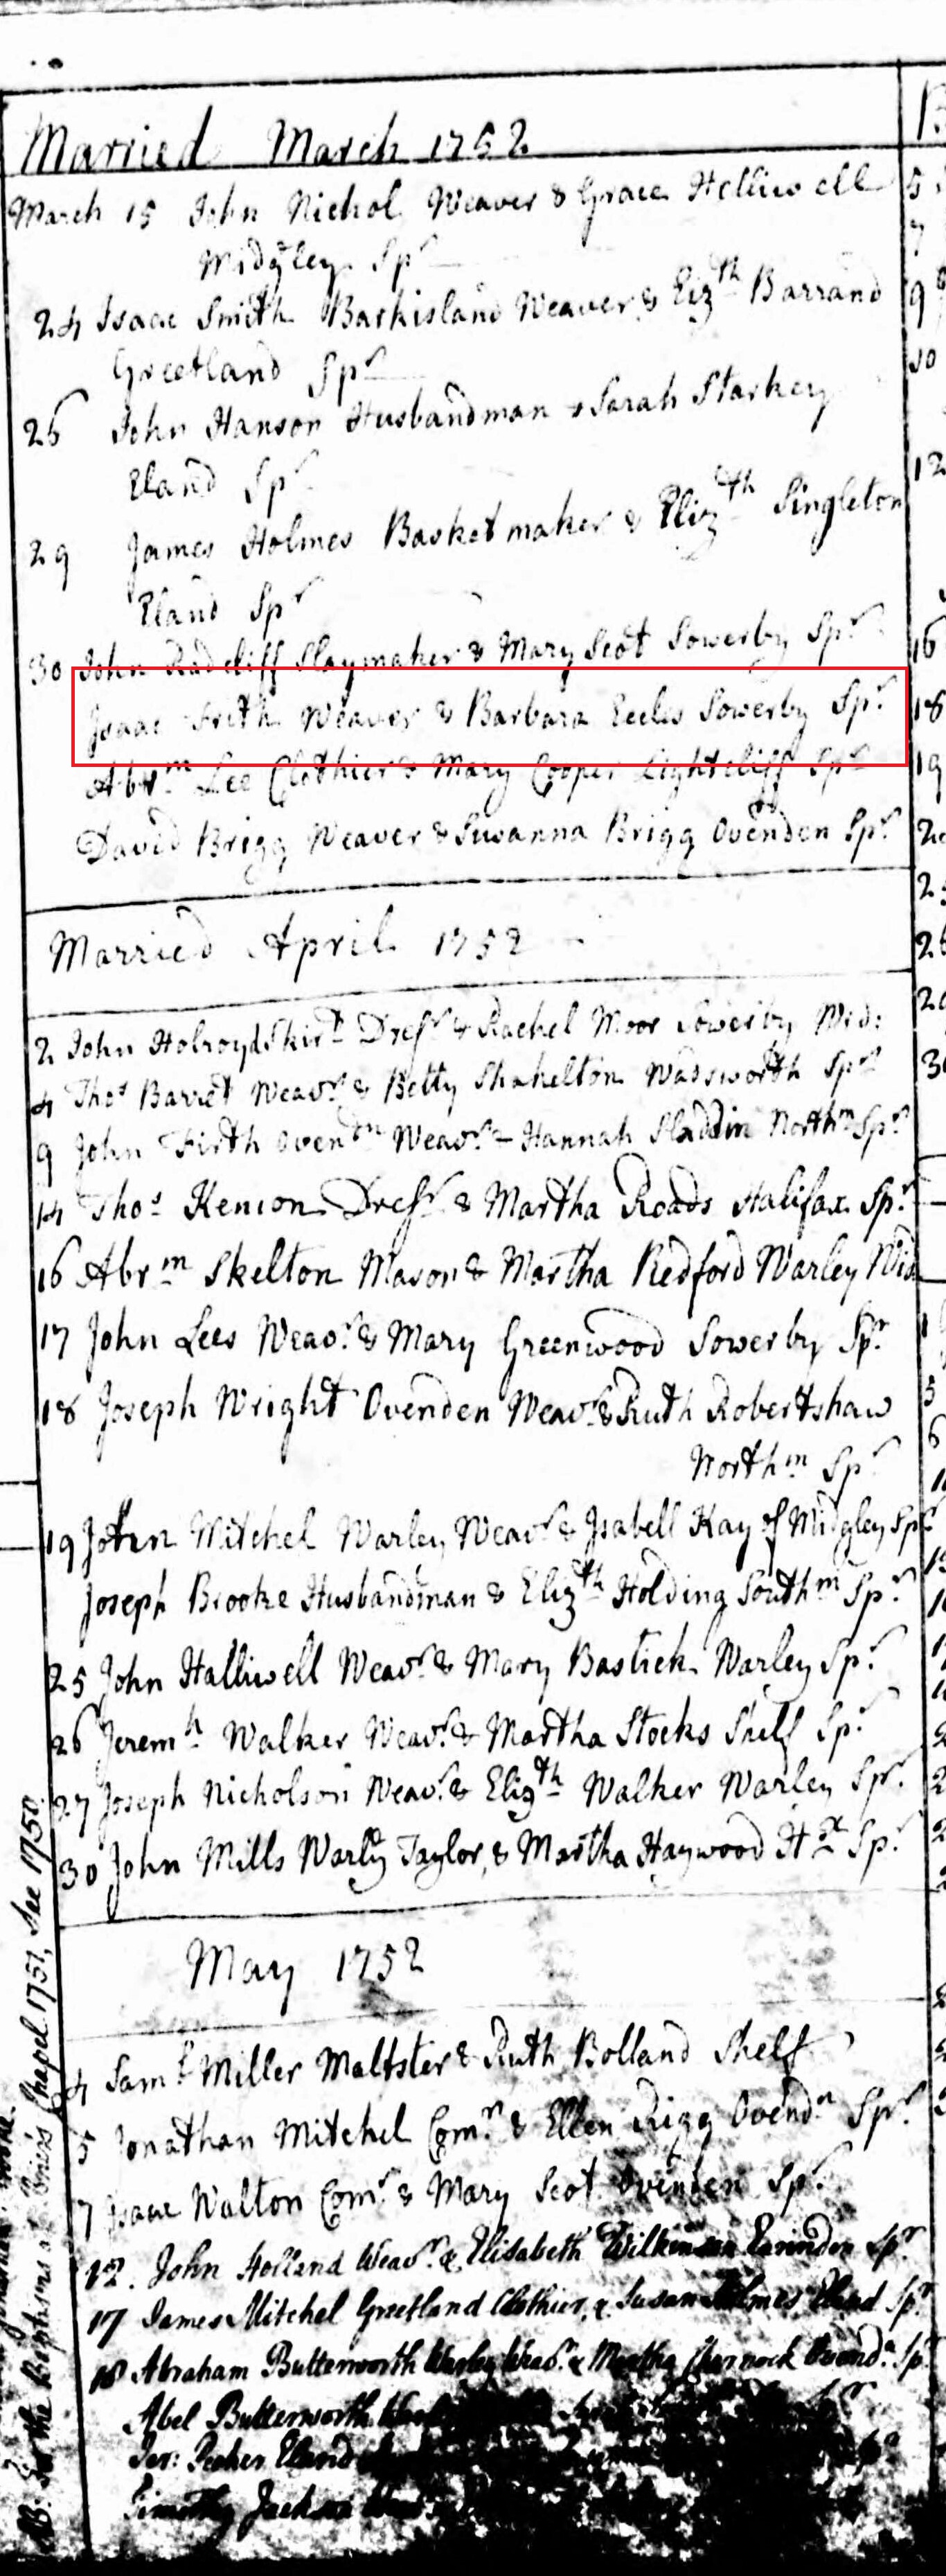 Married March 1752
March 15 John Nichol Weaver & Grace Helliwell
Midgley Spr
24 Isaac Smith Barkisland Weaver & Eizth Barrand
Greetland Spr
26 John Hanson Husbandman & Sarah Starkey
Eland Spr
29 James Holmes Basketmaker & Elizth Singleton
Eland Spr
30 John Radcliff Slaymaker & Mary Scot Sowerby Spr
Isaac Frith Weaver & Barbara Eccles Sowerby Spr
Abrm Lee Clothier & Mary Cooper Lightcliff Spr
David Brigg Weaver & Suwanna Brigg Ovenden Spr
Married April 1752
2 John Holroyd Skirt Dressr & Rachel Moor Sowerby Wid:
4 Thos Barret Weavr & Betty Shakelton Wadsworth Spr
9 John Firth Ovendn Weavr & Hannah Sladdin Northm Spr
14 Thos Kenion Dressr & Martha Roads Halifax Spr
16 Abrm Skelton Mason & Martha Redford Warley Wid
17 John Lees Weavr & Mary Greenwood Sowerby Spr
18 Joseph Wright Ovenden Weavr & Ruth Robertshaw
Northm Spr
19 John Mitchel Warley Weavr & Isabell Kay of Midgley Spr
Joseph Brooke Husbandman & Elizth Holding Southm Spr
25 John Halliwell Weavr & Mary Bastich Warley Spr
26 Jeremh Walker Weavr & Martha Stocks Shelf Spr
27 Joseph Nicholson Weavr & Elizth Walker Warley Spr
30 John Mills Warly Taylor, & Martha Haywood Hx Spr
May 1752
4 Saml Miller Maltster & Ruth Bolland Shelf
5 Jonathan Mitchel Comr & Ellen Rigg Ovendn Spr
7 Isaac Walton Comr & Mary Scot Ovenden Spr
12. John Holland Weavr & Elisabeth Wilkinson Spr
17 James Mitchel Greetland Clothier, & Susan Holmes Eland Spr
18 Abraham Butterworth Weavr & Martha Charnock Ovendn Spr
Abel Butterworth
Eland
Timothy Jackson
Chapel 1751, See 1750.
NB: For the Baptisms at